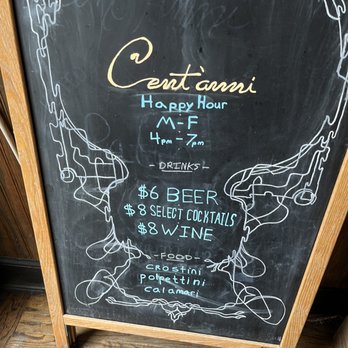 Cent'anni
Happy Hour
M-F
4pm-7pm
-DRINKS-
$6 BEER
$8 SELECT COCKTAILS
$8 WINE
-FOOD-
crostini
polpettini
calamari